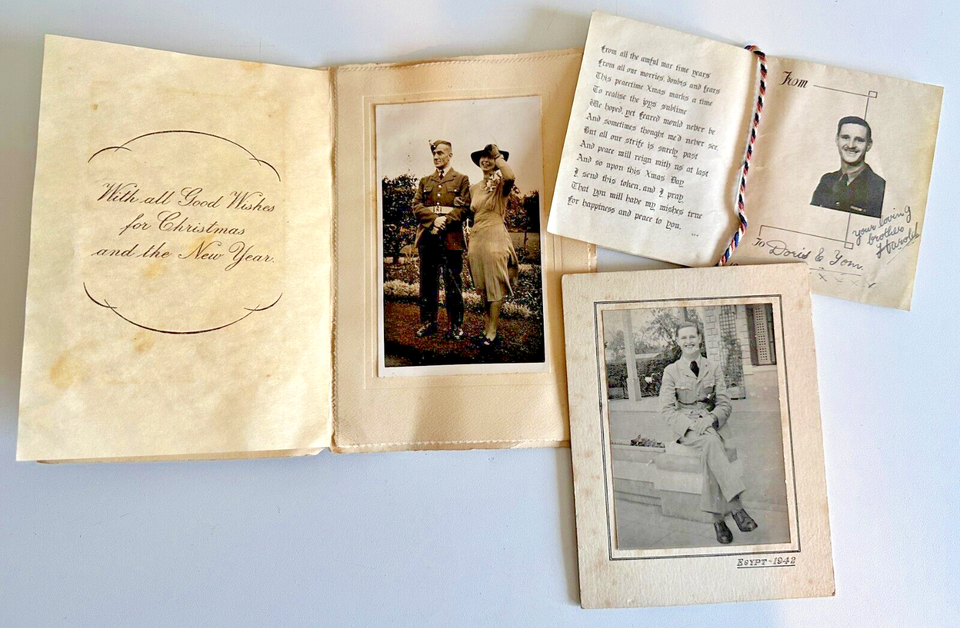 With all Good Wishes
for Christmas
and the New Year.
From all the awful war time years
From all our worries, doubts and fears
This peacetime Xmas marks a time
To realise the joys sublime
We hoped, yet feared would never be
And sometimes thought we'd never see.
But all our strife is surely past
And peace will reign with us at last
And so upon this Xmas Day
I send this token, and I pray
That you will have my wishes true
For happiness and peace to you. ...
From
your loving
brother
Harold.
To Doris & Tom.
x x x
EGYPT-1942